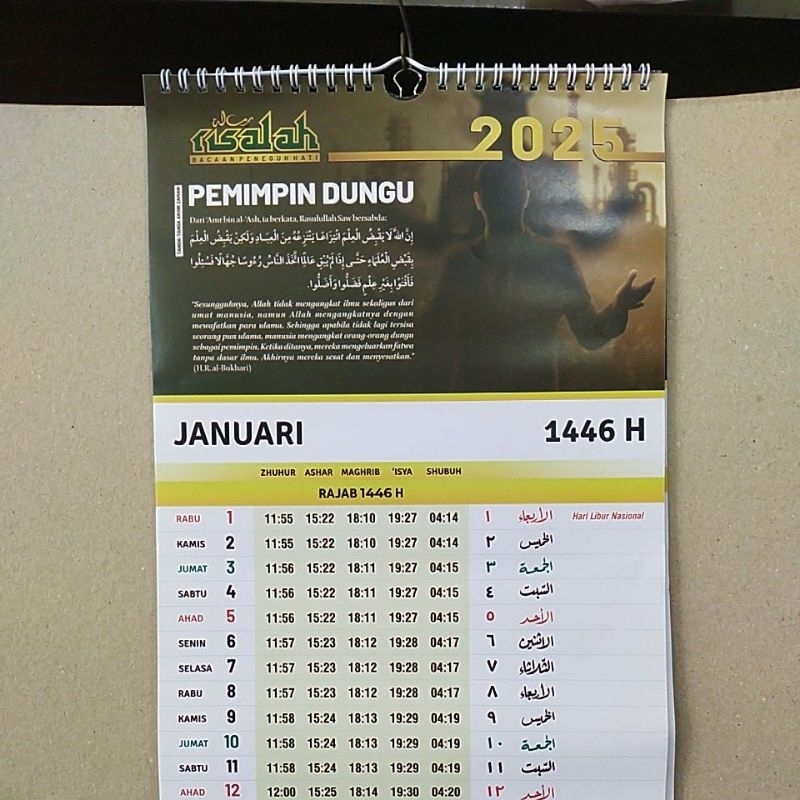 رسالة
risalah
BACAAN PENEGUH HATI
2025
TANDA-TANDA AKHIR ZAMAN
PEMIMPIN DUNGU
Dari 'Amr bin al-'Ash, ia berkata, Rasulullah Saw bersabda:
إِنَّ اللّٰهَ لَا يَقْبِضُ الْعِلْمَ انْتِزَاعًا يَنْتَزِعُهُ مِنَ الْعِبَادِ وَلٰكِنْ يَقْبِضُ الْعِلْمَ
بِقَبْضِ الْعُلَمَاءِ حَتَّى إِذَا لَمْ يُبْقِ عَالِمًا اتَّخَذَ النَّاسُ رُءُوسًا جُهَّالًا فَسُئِلُوا
فَأَفْتَوْا بِغَيْرِ عِلْمٍ فَضَلُّوا وَأَضَلُّوا.
"Sesungguhnya, Allah tidak mengangkat ilmu sekaligus dari
umat manusia, namun Allah mengangkatnya dengan
mewafatkan para ulama. Sehingga apabila tidak lagi tersisa
seorang pun ulama, manusia mengangkat orang-orang dungu
sebagai pemimpin. Ketika ditanya, mereka mengeluarkan fatwa
tanpa dasar ilmu. Akhirnya mereka sesat dan menyesatkan."
(H.R. al-Bukhari)
JANUARI 1446 H
ZHUHUR ASHAR MAGHRIB 'ISYA SHUBUH
RAJAB 1446 H
RABU 1 11:55 15:22 18:10 19:27 04:14 ١ الأربعاء Hari Libur Nasional
KAMIS 2 11:55 15:22 18:10 19:27 04:14 ٢ الخميس
JUMAT 3 11:56 15:22 18:11 19:27 04:15 ٣ الجمعة
SABTU 4 11:56 15:22 18:11 19:27 04:15 ٤ السبت
AHAD 5 11:56 15:22 18:11 19:27 04:15 ٥ الأحد
SENIN 6 11:57 15:23 18:12 19:28 04:17 ٦ الاثنين
SELASA 7 11:57 15:23 18:12 19:28 04:17 ٧ الثلاثاء
RABU 8 11:57 15:23 18:12 19:28 04:17 ٨ الأربعاء
KAMIS 9 11:58 15:24 18:13 19:29 04:19 ٩ الخميس
JUMAT 10 11:58 15:24 18:13 19:29 04:19 ١٠ الجمعة
SABTU 11 11:58 15:24 18:13 19:29 04:19 ١١ السبت
AHAD 12 12:00 15:25 18:14 19:30 04:20 ١٢ الأحد